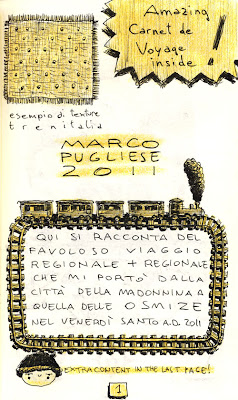 Amazing
Carnet de
Voyage
inside!
esempio di texture
trenitalia
MARCO
PUGLIESE
2011
QUI SI RACCONTA DEL
FAVOLOSO VIAGGIO
REGIONALE + REGIONALE
CHE MI PORTÒ DALLA
CITTÀ DELLA MADONNINA A
QUELLA DELLE OSMIZE
NEL VENERDÌ SANTO A.D. 2011
EXTRA CONTENT IN THE LAST PAGE!
1